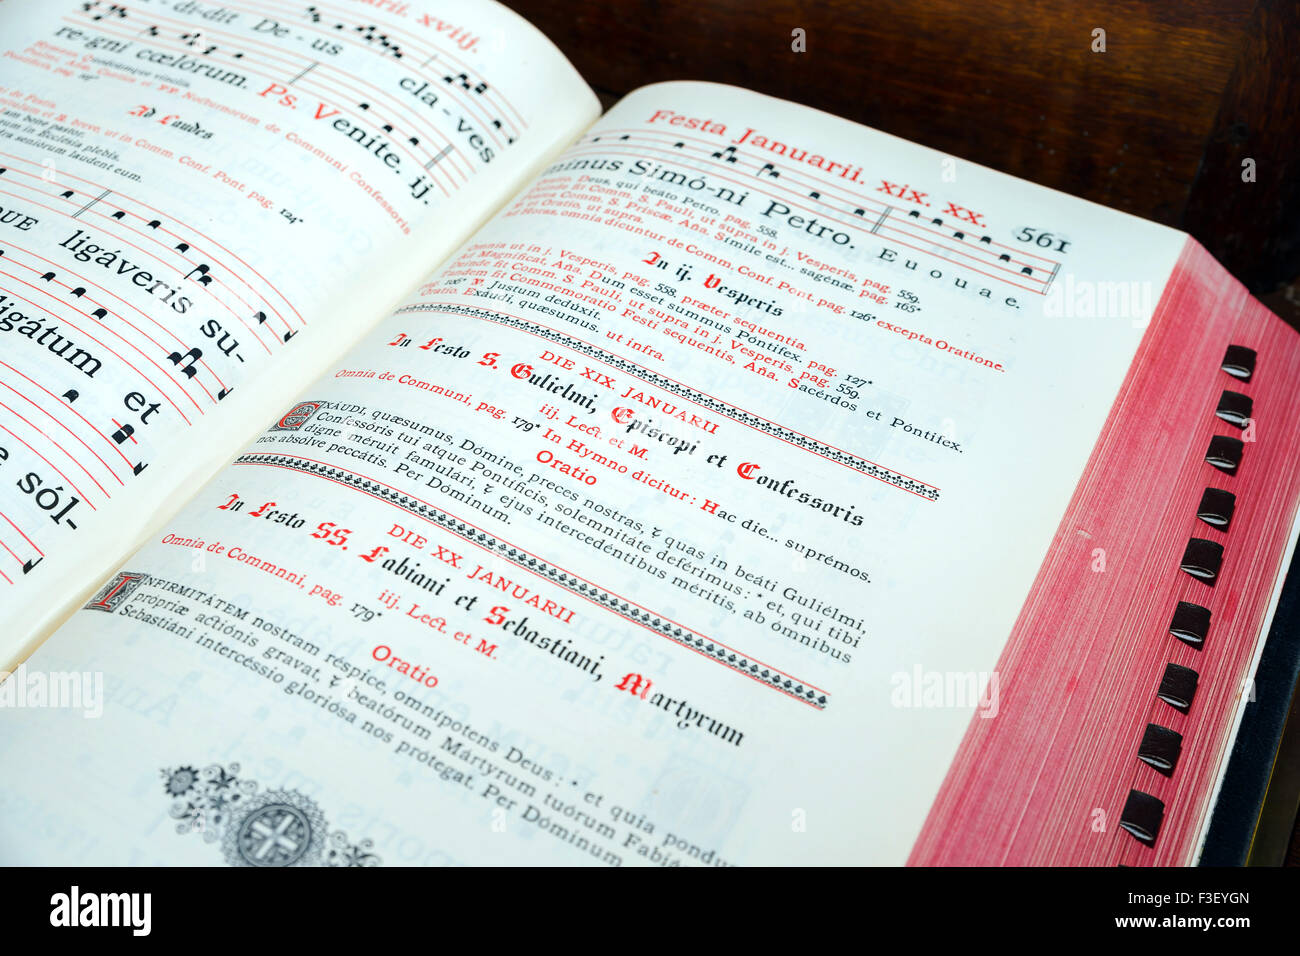 Januarii. xviij.
di-dit De-us cla-ves
regni cœlórum. Ps. Veníte. ij.
Ad Laudes
ligáveris su-
ligátum et
sól-
Festa Januarii. xix. xx. 561
Simó-ni Petro. E u o u a e.
Deus, qui beáto Petro, pag. 558.
Deinde fit Comm. S. Pauli, ut supra in j. Vesperis, pag. 559.
Deinde fit Comm. S. Priscæ, Aña. Símile est... sagénæ, pag. 165*
et Oratio, ut supra.
Ad Horas, omnia dicuntur de Comm. Conf. Pont. pag. 126* excepta Oratione.
In ij. Vesperis
Omnia ut in j. Vesperis, pag. 558, præter sequentia.
Ad Magnificat, Aña. Dum esset summus Póntifex. pag. 127*
Deinde fit Comm. S. Pauli, ut supra in j. Vesperis, pag. 559.
Tandem fit Commemoratio Festi sequentis, Aña. Sacérdos et Póntifex.
pag. 106* ℣. Justum dedúxit.
Oratio. Exáudi, quǽsumus. ut infra.
DIE XIX. JANUARII
In Festo S. Gulielmi, Episcopi et Confessoris
iij. Lect. et M.
Omnia de Communi, pag. 179* In Hymno dicitur : Hac die... suprémos.
Oratio
EXÁUDI, quǽsumus, Dómine, preces nostras, & quas in beáti Guliélmi,
Confessóris tui atque Pontíficis, solemnitáte deférimus : * et, qui tibi
digne méruit famulári, & ejus intercedéntibus méritis, ab ómnibus
nos absólve peccátis. Per Dóminum.
DIE XX. JANUARII
In Festo SS. Fabiani et Sebastiani, Martyrum
iij. Lect. et M.
Omnia de Commnni, pag. 179*
Oratio
INFIRMITÁTEM nostram réspice, omnípotens Deus : * et quia pondus
própriæ actiónis gravat, & beatórum Mártyrum tuórum Fabiáni
Sebastiáni intercéssio gloriósa nos prótegat. Per Dóminum
alamy
Image ID: F3EYGN
www.alamy.com